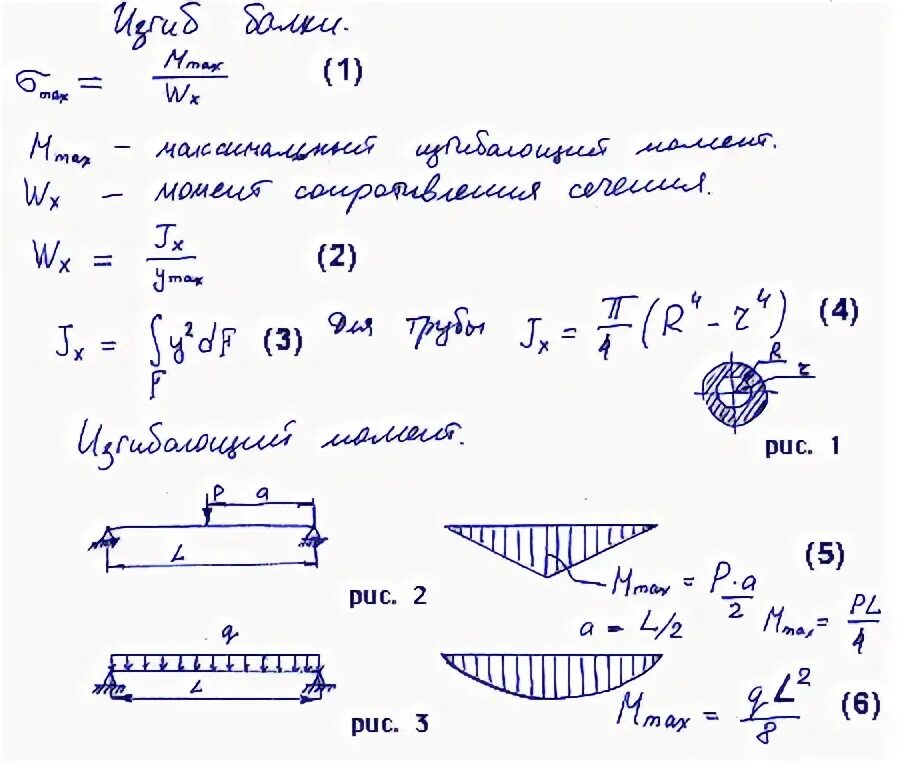 Изгиб балки.
σmax = Mmax / Wx (1)
Mmax – максимальный изгибающий момент.
Wx – момент сопротивления сечения.
Wx = Jx / ymax (2)
Jx = ∫F y² dF (3) Для трубы Jx = π/4 (R⁴ – r⁴) (4)
R
r
рис. 1
Изгибающий момент.
P a
L
рис. 2
Mmax = P·a / 2 (5)
a = L/2 Mmax = PL / 4
q
L
рис. 3
Mmax = qL² / 8 (6)